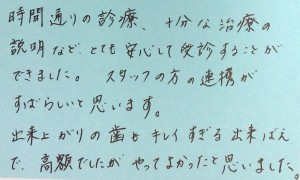 時間通りの診療、十分な治療の
説明など、とても安心して受診することが
できました。 スタッフの方の連携が
すばらしいと思います。
出来上がりの歯もキレイすぎる出来ばえ
で、高額でしたが やってよかったと思いました。